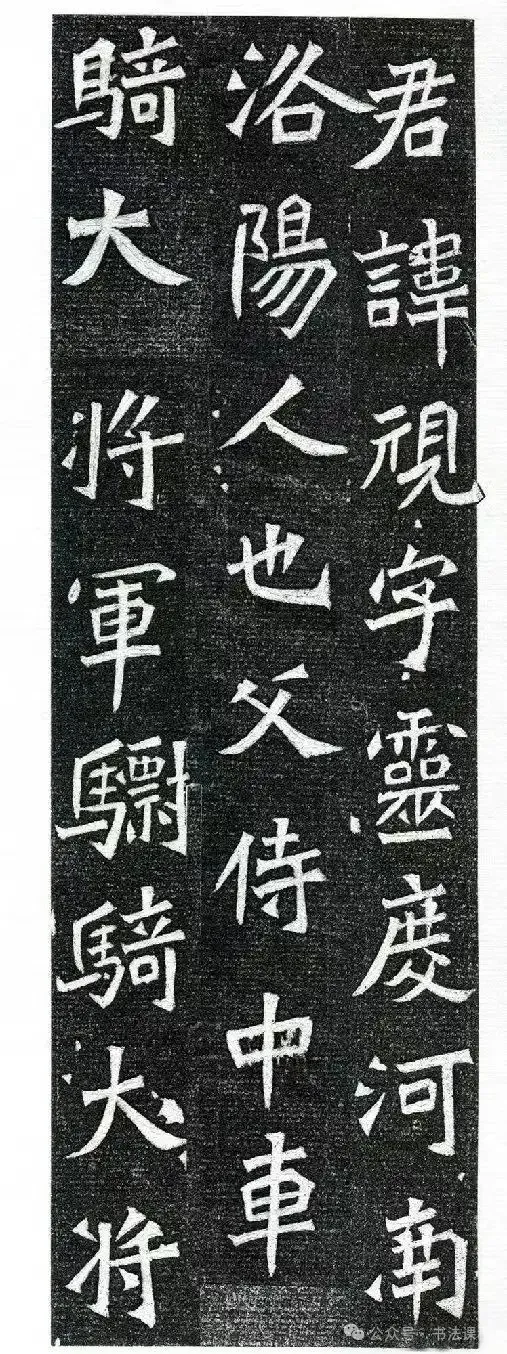 君諱視字靈慶河南
洛陽人也父侍中車
騎大将軍驃騎大将
公众号·书法课